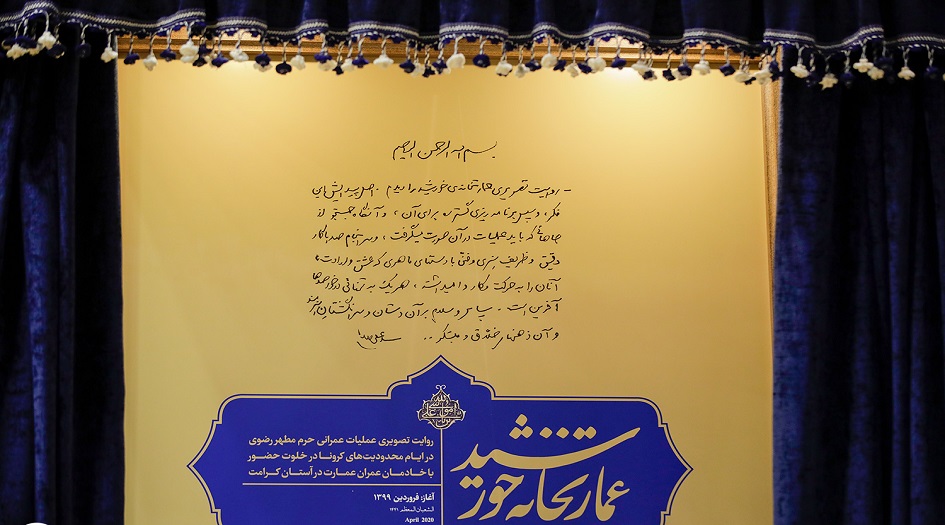 بسم الله الرحمن الرحیم
- روایت تصویری عمارتخانه‌ی خورشید را دیدم. اصل پیدایش این
فکر، و سپس برنامه ریزی گسترده برای آن، و آنگاه جستجو از
جاهائی که باید عملیات در آن صورت میگرفت، و سرانجام صدها کار
دقیق و ظریف هنری و فنی با دستهای ماهری که عشق و ارادت،
آنان را به حرکت و کار وامیداشته، هر یک به تنهائی در خور صدها
آفرین است. سپاس و سلام بر آن دستان و سرانگشتان
و آن ذهنهای خلاق و مبتکر..
عمارتخانه خورشید
روایت تصویری عملیات عمرانی حرم مطهر رضوی
در ایام محدودیت‌های کرونا در خلوت حضور
با خادمان عمران عمارت در آستان کرامت
آغاز: فروردین ۱۳۹۹
الشعبان المعظم ۱۴۴۱
April 2020